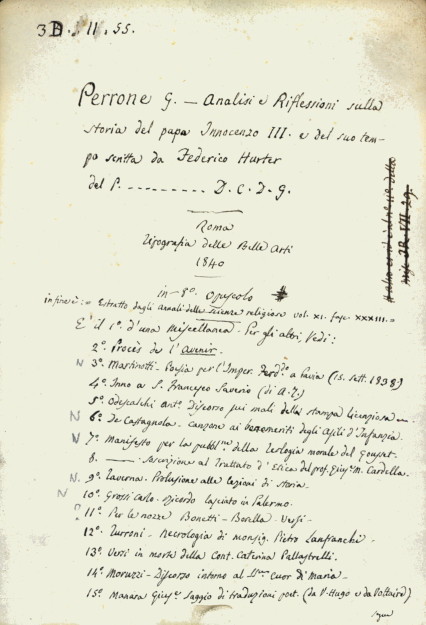 3B. II. 55.
Perrone G. — Analisi e Riflessioni sulla
storia del papa Innocenzo III. e del suo tem-
po scritta da Federico Hurter
del P. - - - - - - - - - D. C. D. G.
Roma
Tipografia delle Belle Arti
1840
in-8º. Opuscolo
in fine è := Estratto dagli Annali delle scienze religiose vol. XI. fasc. XXXIII. =
E il 1º. d'una Miscellanea. Per gli altri, Vedi:
2º. Procès de l'Avenir.
N 3º. Martinotti. Poesia per l'Imper. Ferd.do a Pavia (15. sett. 1838.)
4º. Inno a S. Francesco Saverio (di A. Z.)
5º. Odescalchi Ant.º Discorso sui mali della stampa licenziosa —
N 6º. De Castagnola. Canzone ai benemeriti degli Asili d'Infanzia.
N 7º. Manifesto per la pubbl.ne della Teologia morale del Gousset.
8. —— Soscrizione al Trattato d'Etica del prof. Gius.e M. Cardella.
N 9º. Taverna. Prolusione alle lezioni di storia.
N 10º. Grossi Carlo. Ricordo lasciato in Palermo.
11º. Per le nozze Bonetti - Borella. Versi -
12º. Turroni - Necrologia di monsig. Pietro Lanfranchi -
13º. Versi in morte della Cont. Caterina Pallastrelli.
14º. Moruzzi - Discorso intorno al Cuor di Maria -
15º. Manara Gius.e Saggio di traduzioni poet. (da V. Hugo e da Voltaire)